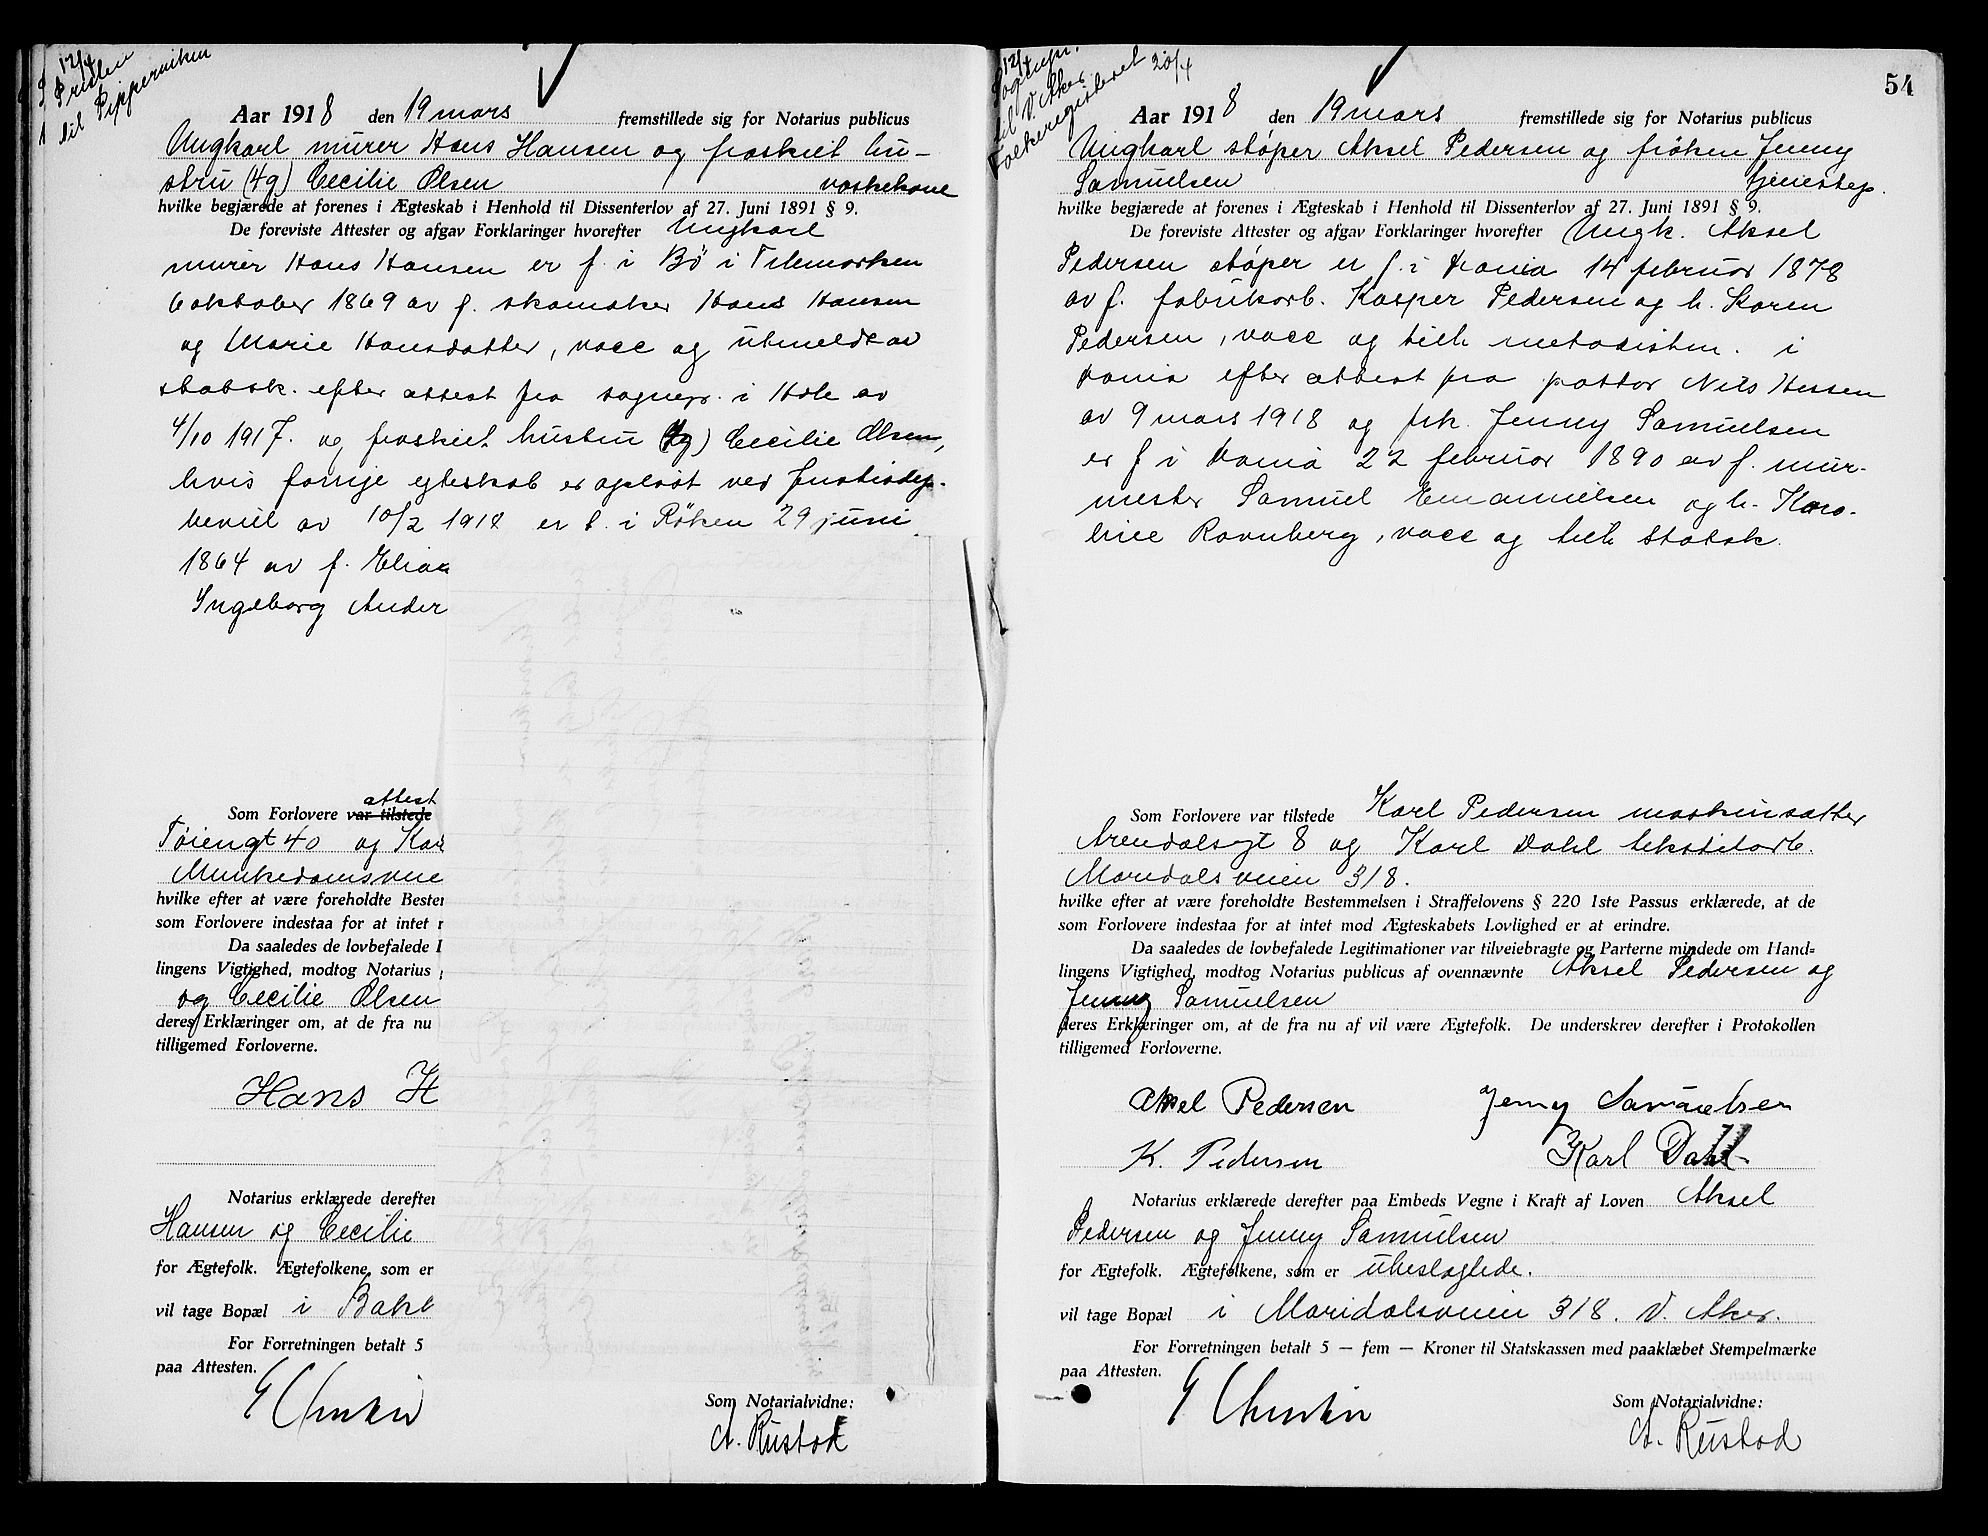 12/4
Presten
til Pipperviken
Aar 1918 den 19 mars fremstillede sig for Notarius publicus
Ungkarl murer Hans Hansen og fraskilt hu-
stru (49) Cecilie Olsen vaskekone
hvilke begjærede at forenes i Ægteskab i Henhold til Dissenterlov af 27. Juni 1891 § 9.
De foreviste Attester og afgav Forklaringer hvorefter Ungkarl
murer Hans Hansen er f. i Bø i Telemarken
6 oktober 1869 av f. skomaker Hans Hansen
og Marie Hansdatter, vacc og utmeldt av
statsk. efter attest fra sognepr. i Hole av
4/10 1917. og fraskilt hustru Cecilie Olsen,
hvis forrige egteskab er opløst ved justisdep.
bevil av 10/2 1918 er f. i Røken 29 juni
1864 av f. Elias
Ingeborg Ander
Som Forlovere var tilstede attest
Tøiengt 40 og Kar
Munkedamsveie
hvilke efter at være foreholdte Bester
som Forlovere indestaa for at intet r
Da saaledes de lovbefalede I
lingens Vigtighed, modtog Notarius
og Cecilie Olsen
deres Erklæringer om, at de fra nu
tilligemed Forloverne.
Hans H
Notarius erklærede derefter
Hansen og Cecilie
for Ægtefolk. Ægtefolkene, som er
vil tage Bopæl i Bakk
For Forretningen betalt 5
paa Attesten.
Som Notarialvidne:
A. Rustad
54
12/4
Sognepr.
til V. Aker
Folkeregisteret 20/4
Aar 1918 den 19 mars fremstillede sig for Notarius publicus
Ungkarl støper Aksel Pedersen og frøken Jenny
Samuelsen tjenestep.
hvilke begjærede at forenes i Ægteskab i Henhold til Dissenterlov af 27. Juni 1891 § 9.
De foreviste Attester og afgav Forklaringer hvorefter Ungk. Aksel
Pedersen støper er f. i Xania 14 februar 1878
av f. fabrikarb. Kasper Pedersen og h. Karen
Pedersen, vacc og tilh metodistm. i
Xania efter attest fra pastor Nils Hessen
av 9 mars 1918 og frk. Jenny Samuelsen
er f i Xania 22 februar 1890 av f. mur-
mester Samuel Emanuelsen og h. Karo-
line Ravnberg, vacc og tilh statsk.
Som Forlovere var tilstede Karl Pedersen maskinsætter
Arendalsgt 8 og Karl Dahl tekstilarb.
Maridalsveien 318.
hvilke efter at være foreholdte Bestemmelsen i Straffelovens § 220 1ste Passus erklærede, at de
som Forlovere indestaa for at intet mod Ægteskabets Lovlighed er at erindre.
Da saaledes de lovbefalede Legitimationer var tilveiebragte og Parterne mindede om Hand=
lingens Vigtighed, modtog Notarius publicus af ovennævnte Aksel Pedersen og
Jenny Samuelsen
deres Erklæringer om, at de fra nu af vil være Ægtefolk. De underskrev derefter i Protokollen
tilligemed Forloverne.
Aksel Pedersen Jenny Samuelsen
K. Pedersen Karl Dahl
Notarius erklærede derefter paa Embeds Vegne i Kraft af Loven Aksel
Pedersen og Jenny Samuelsen
for Ægtefolk. Ægtefolkene, som er ubeslagtede.
vil tage Bopæl i Maridalsveien 318. V. Aker.
For Forretningen betalt 5 — fem — Kroner til Statskassen med paaklæbet Stempelmærke
paa Attesten.
Som Notarialvidne:
A. Rustad